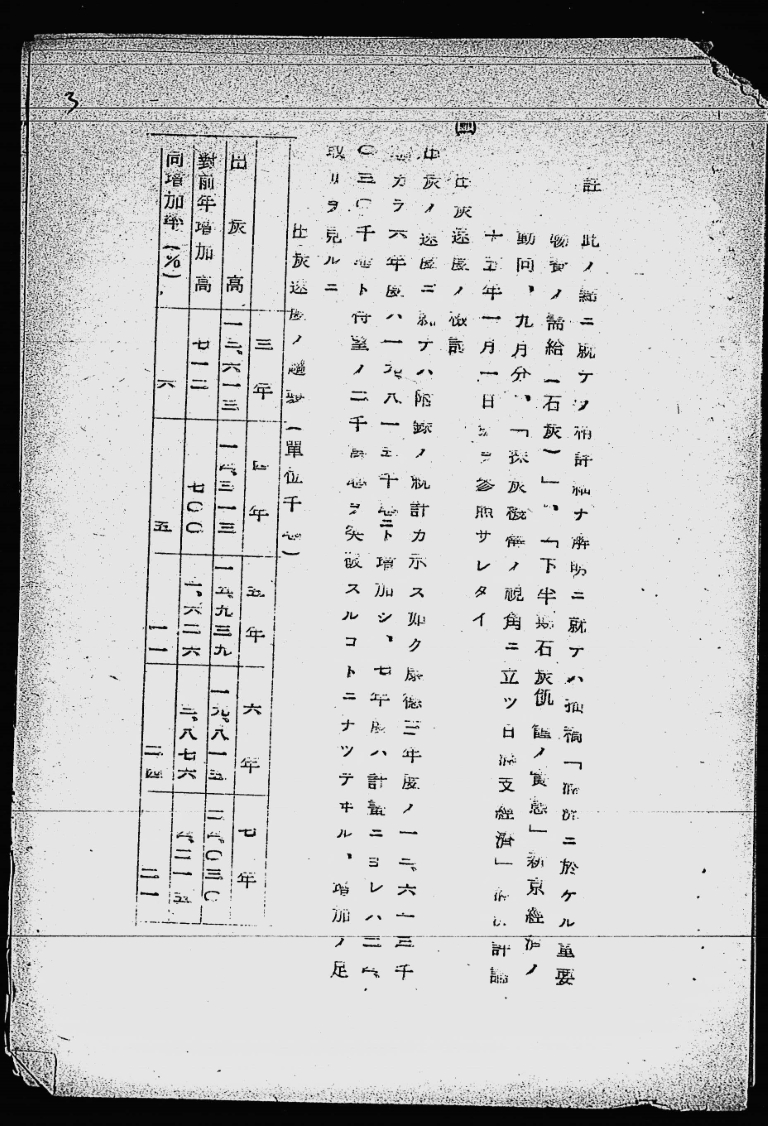 3
註 此ノ點ニ就テノ稍詳細ナ解明ニ就テハ拙稿「滿洲ニ於ケル重要
物資ノ需給(石灰)」、「下半期石灰飢饉ノ實態」新京經濟ノ
動向、九月分、「採炭機構ノ視角ニ立ツ日滿支經濟」滿洲評論
十五年一月一日 ヲ參照サレタイ
四
出炭速度ノ檢討
出炭ノ速度ニ就テハ附錄ノ統計カ示ス如ク康德三年度ノ一三、六一三千
カラ六年度ハ一九、八一五千瓲ニト增加シ、七年度ハ計畫ニヨレハ二四、
〇三〇千瓲ト待望ノ二千萬瓲ヲ突破スルコトニナツテヰル、增加ノ足
取リヲ見ルニ
出炭速度ノ趨勢(單位千瓲)
三年 四年 五年 六年 七年
出炭高 一三、六一三 一四、三一三 一五、九三九 一九、八一五 二四、〇三〇
對前年增加高 七一二 七〇〇 一、六二六 三、八七六 四、二一五
同增加率(%) 六 五 一一 二四 二一